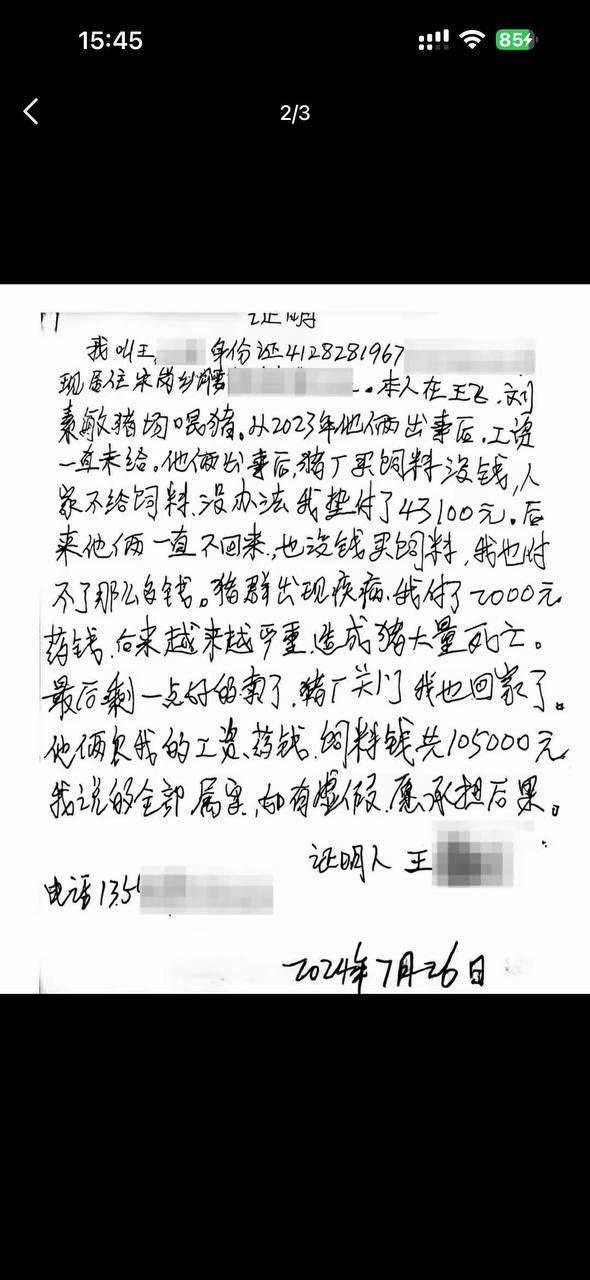 15:45
85
2/3
证明
我叫王 年份证4128281967
现居住宋岗乡 本人在王飞、刘
素敏猪场喂猪。从2023年他俩出事后,工资
一直未给。他俩出事后,猪厂买饲料没钱,人
家不给饲料,没办法我垫付了43100元。后
来他俩一直不回来,也没钱买饲料,我也付
不了那么多钱。猪群出现疾病,我付了2000元
药钱,后来越来越严重,造成猪大量死亡。
最后剩一点好的卖了,猪厂关门我也回家了。
他俩欠我的工资、药钱、饲料钱共105000元
我说的全部属实,如有虚假,愿承担后果。
证明人 王
电话 135
2024年7月26日